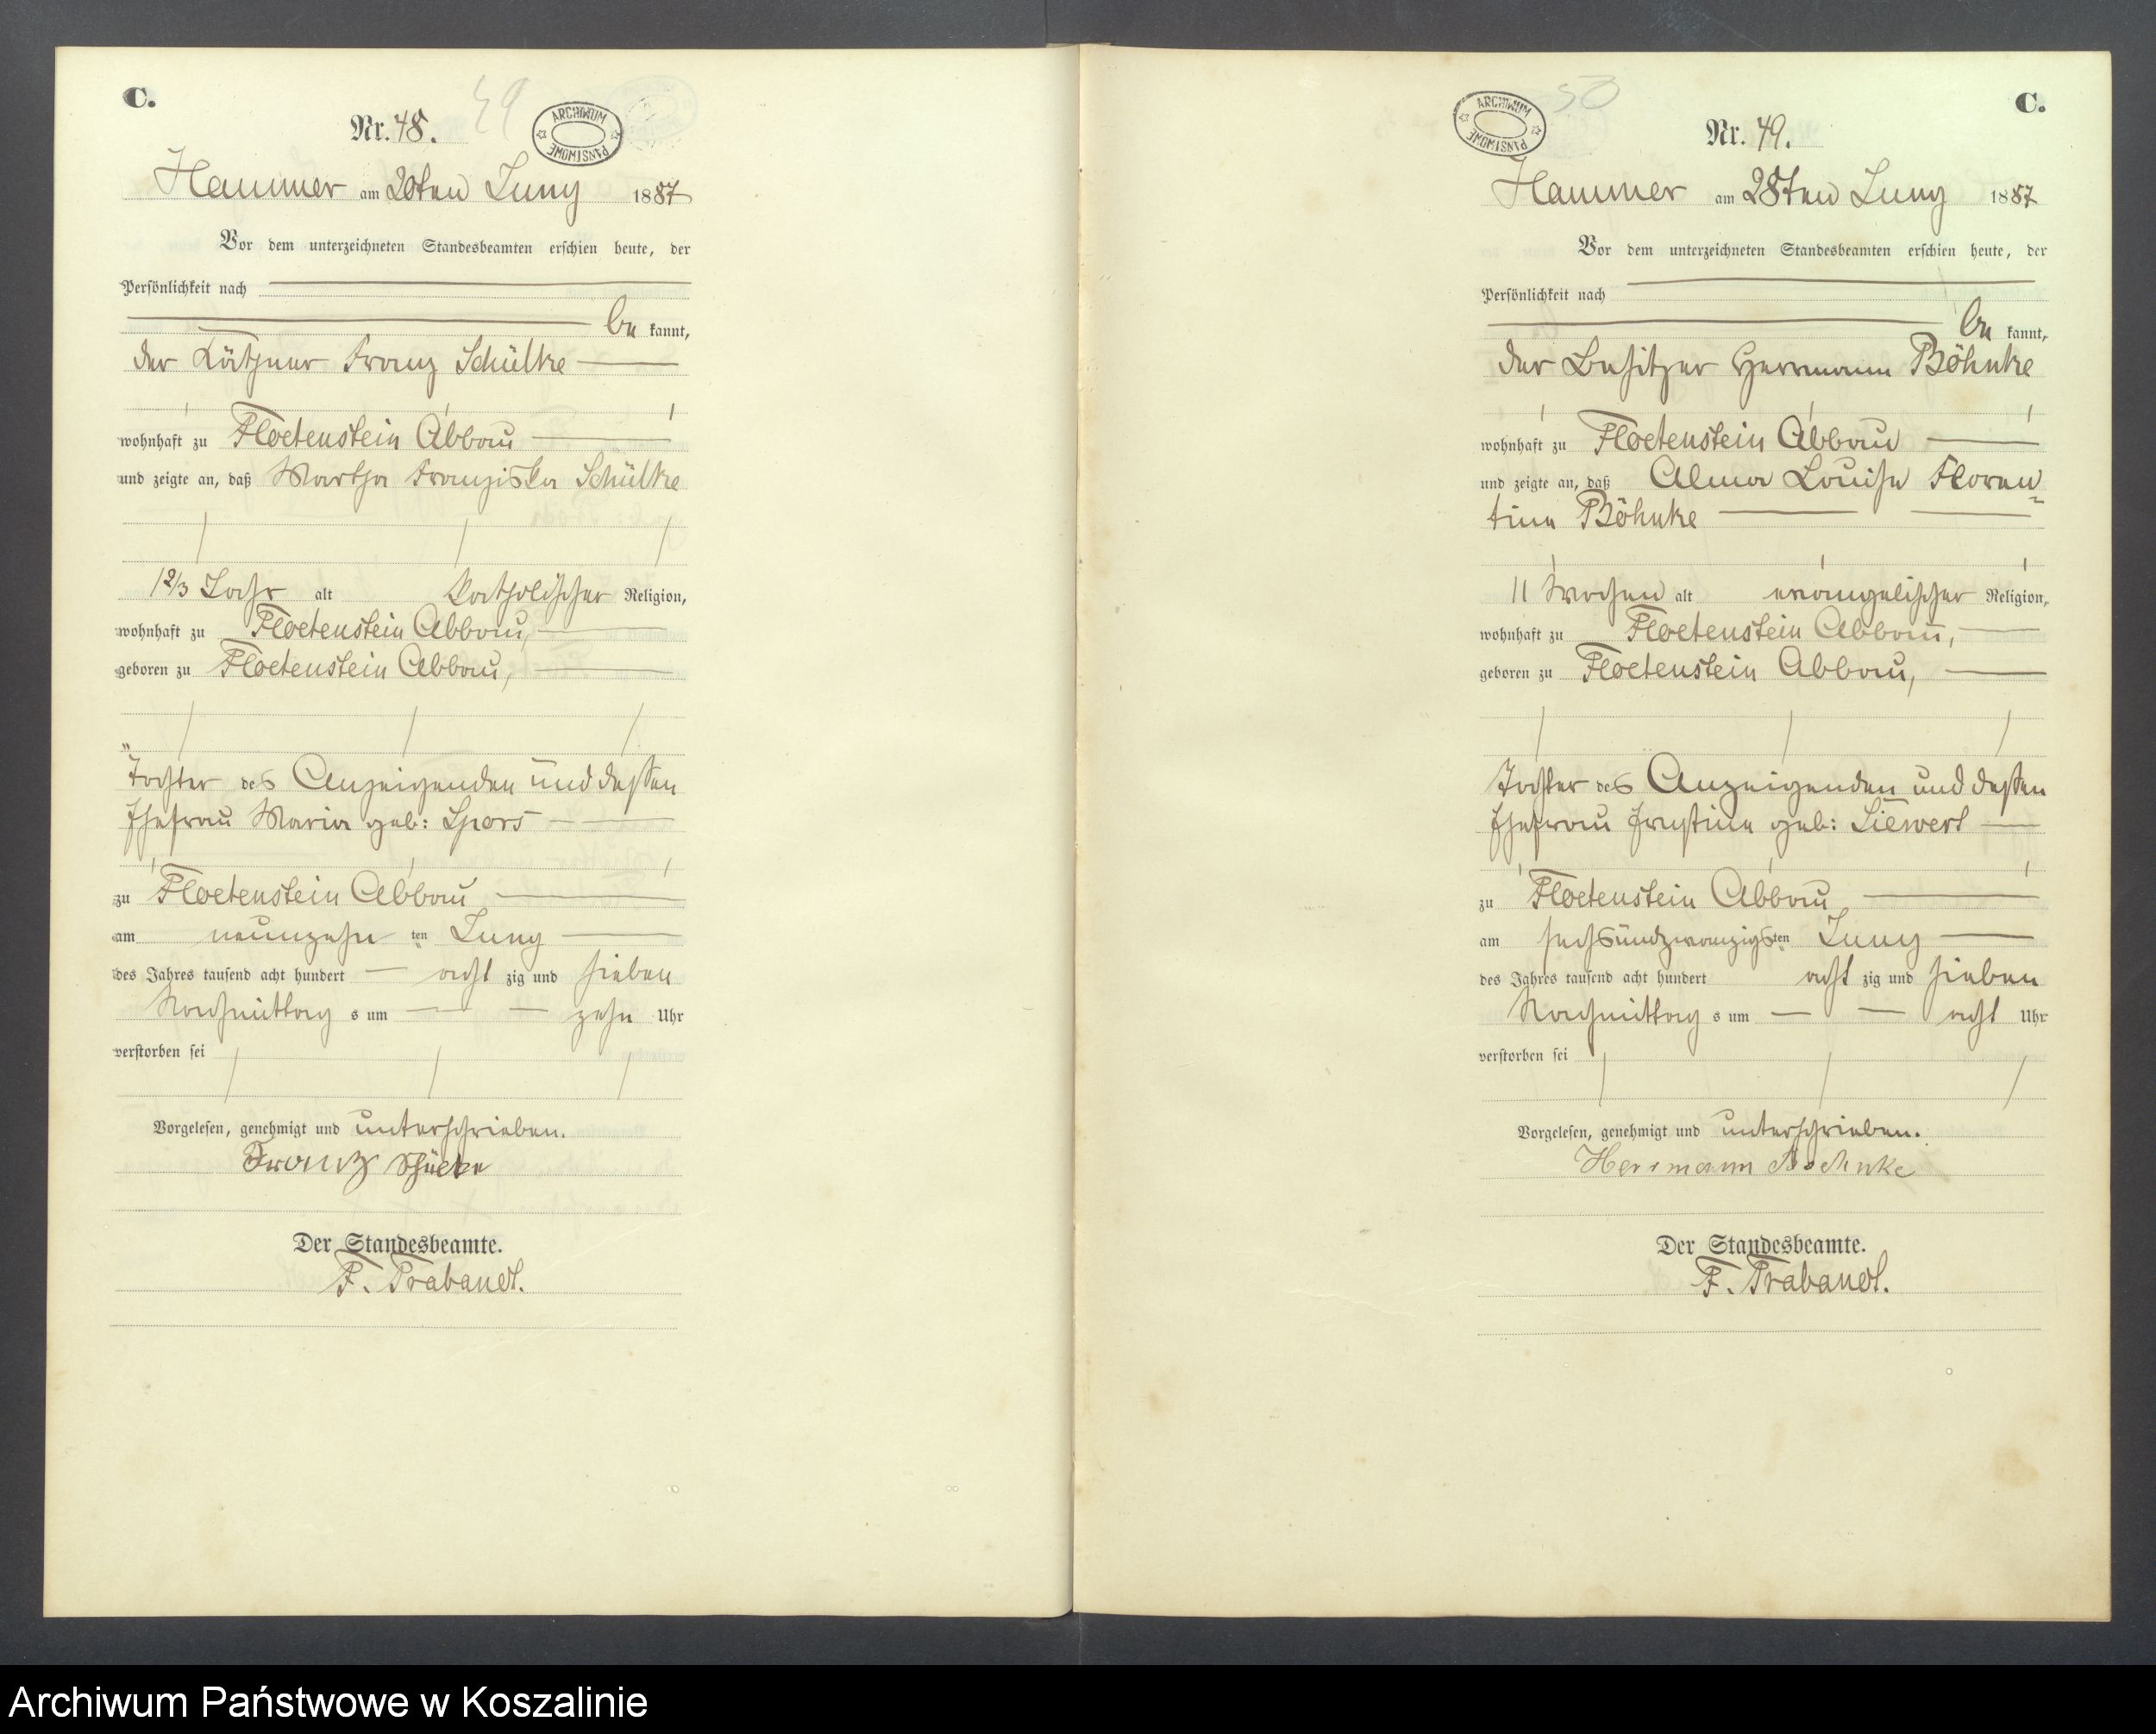 C.
49
Nr. 48.
ARCHIWUM PAŃSTWOWE
Hammer am 20ten Juny 1887
Vor dem unterzeichneten Standesbeamten erschien heute, der
Persönlichkeit nach
be kannt,
der Käthner Franz Schülke
wohnhaft zu Floetenstein Abbau
und zeigte an, daß Martha Franziska Schülke
1 2/3 Jahr alt katholischer Religion,
wohnhaft zu Floetenstein Abbau,
geboren zu Floetenstein Abbau,
Tochter des Anzeigenden und dessen
Ehefrau Maria geb: Spors
zu Floetenstein Abbau
am neunzehn ten Juny
des Jahres tausend acht hundert acht zig und sieben
Nachmittag s um zehn Uhr
verstorben sei
Vorgelesen, genehmigt und unterschrieben.
Franz Schülke
Der Standesbeamte.
F. Trabandt.
C.
50
Nr. 49.
ARCHIWUM PAŃSTWOWE
Hammer am 28ten Juny 1887
Vor dem unterzeichneten Standesbeamten erschien heute, der
Persönlichkeit nach
be kannt,
der Besitzer Herrmann Böhnke
wohnhaft zu Floetenstein Abbau
und zeigte an, daß Alma Louise Floren=
tine Böhnke
11 Wochen alt evangelischer Religion,
wohnhaft zu Floetenstein Abbau,
geboren zu Floetenstein Abbau,
Tochter des Anzeigenden und dessen
Ehefrau Justine geb: Siewert
zu Floetenstein Abbau
am sechsundzwanzigsten Juny
des Jahres tausend acht hundert acht zig und sieben
Nachmittag s um acht Uhr
verstorben sei
Vorgelesen, genehmigt und unterschrieben.
Herrmann Boehnke
Der Standesbeamte.
F. Trabandt.
Archiwum Państwowe w Koszalinie